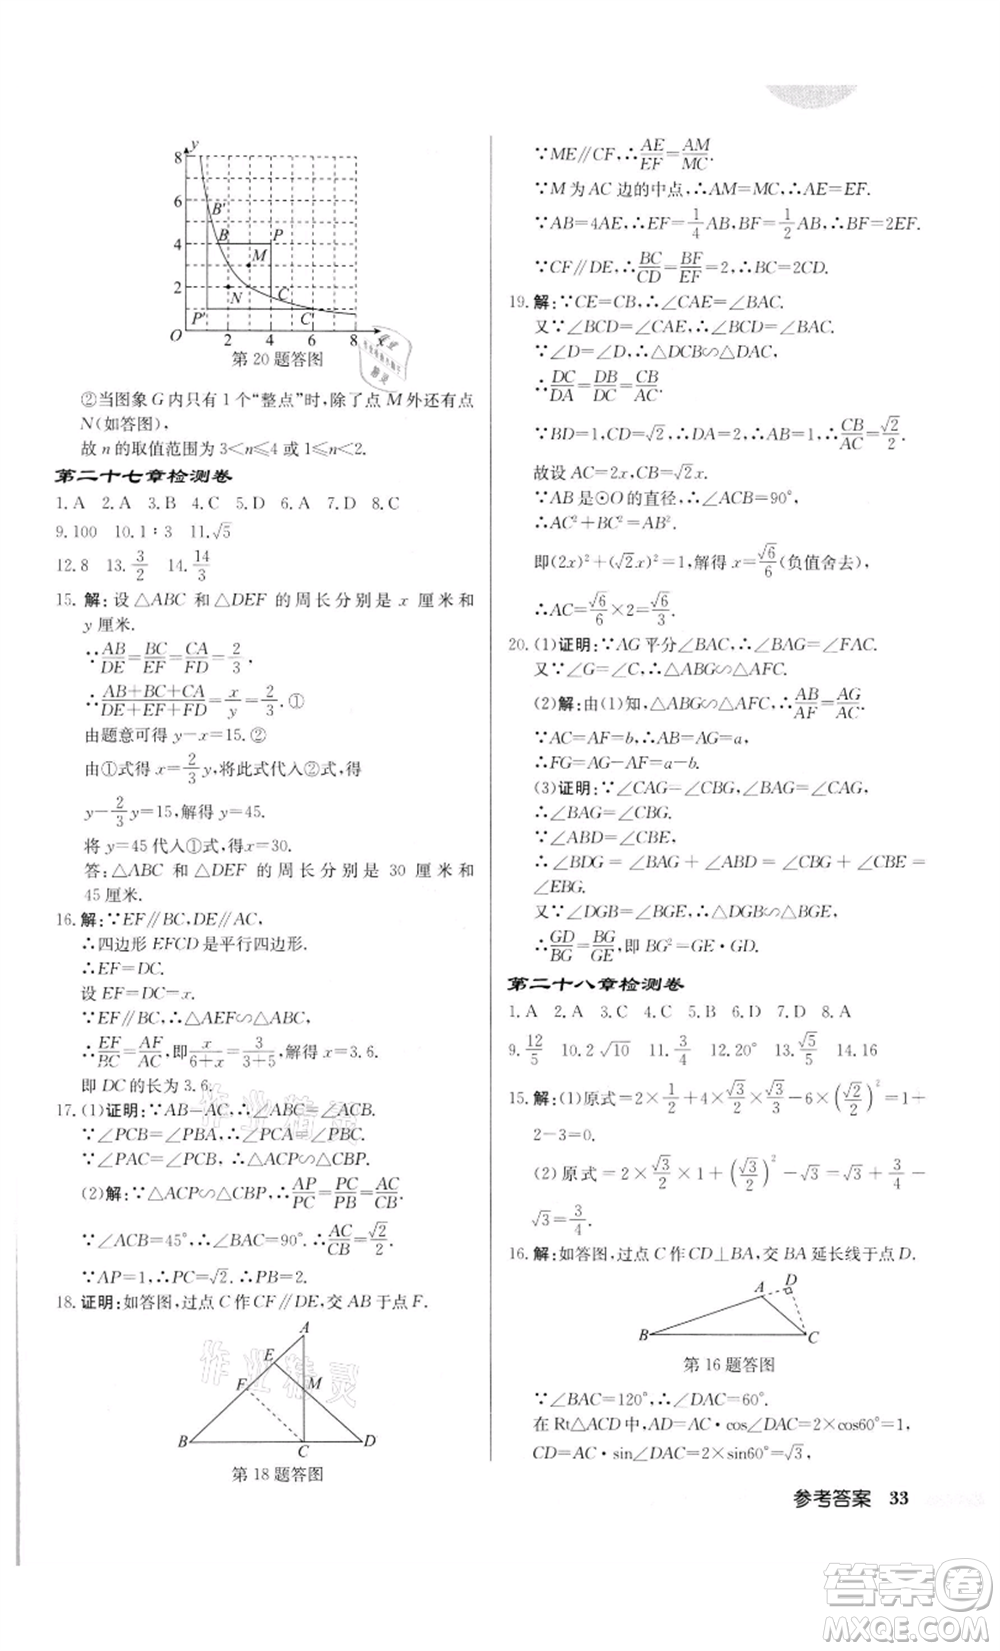 y
8
6
B'
B
P
4
M
2
N
C
P'
C'
O
2
4
6
8
x
第20题答图
②当图象 G 内只有 1 个“整点”时,除了点 M 外还有点
N(如答图),
故 n 的取值范围为 3<n≤4 或 1≤n<2.
第二十七章检测卷
1. A 2. A 3. B 4. C 5. D 6. A 7. D 8. C
9. 100 10. 1∶3 11. √5
12. 8 13. 3/2 14. 14/3
15. 解:设△ABC 和△DEF 的周长分别是 x 厘米和
y 厘米.
∵AB/DE=BC/EF=CA/FD=2/3,
∴(AB+BC+CA)/(DE+EF+FD)=x/y=2/3.①
由题意可得 y-x=15.②
由①式得 x=2/3y,将此式代入②式,得
y-2/3y=15,解得 y=45.
将 y=45 代入①式,得x=30.
答:△ABC 和△DEF 的周长分别是 30 厘米和
45 厘米.
16. 解:∵EF∥BC,DE∥AC,
∴四边形 EFCD 是平行四边形.
∴EF=DC.
设 EF=DC=x.
∵EF∥BC,∴△AEF∽△ABC,
∴EF/BC=AF/AC,即x/(6+x)=3/(3+5),解得 x=3.6.
即 DC 的长为 3.6.
17. (1)证明:∵AB=AC,∴∠ABC=∠ACB.
∵∠PCB=∠PBA,∴∠PCA=∠PBC.
∵∠APC=∠PAC,∴△ACP∽△CBP.
(2)解:∵△ACP∽△CBP,∴AP/PC=PC/PB=AC/CB.
∵∠ACB=45°,∴∠BAC=90°.∴AC/CB=√2/2.
∵AP=1,∴PC=√2.∴PB=2.
18. 证明:如答图,过点 C 作 CF∥DE,交 AB 于点 F.
A
E
F
M
B
C
D
第18题答图
∵ME∥CF,∴AE/EF=AM/MC.
∵M 为 AC 边的中点,∴AM=MC,∴AE=EF.
∵AB=4AE,∴EF=1/4AB,BF=1/2AB,∴BF=2EF.
∵CF∥DE,∴BC/CD=BF/EF=2,∴BC=2CD.
19. 解:∵CE=CB,∴∠CAE=∠BAC.
又∵∠BCD=∠CAE,∴∠BCD=∠BAC.
又∵∠D=∠D,∴△DCB∽△DAC.
∴DC/DA=DB/DC=CB/AC.
∵DB=1,CD=√2,∴DA=2,∴CB/AC=√2/2.
故设 AC=2x,CB=√2x.
∵AB 是⊙O 的直径,∴∠ACB=90°,
∴AC²+BC²=AB².
即(2x)²+(√2x)²=1,解得 x=√6/6(负值舍去),
∴AC=√6/6×2=√6/3.
20. (1)证明:∵AG 平分∠BAC,∴∠BAG=∠FAC.
又∵∠G=∠C,∴△ABG∽△AFC.
(2)解:由(1)知,△ABG∽△AFC,∴AB/AF=AG/AC.
∵AC=AF=b,∴AB=AG=a,
∴FG=AG-AF=a-b.
(3)证明:∵∠CAG=∠CBG,∠BAG=∠CAG,
∴∠BAG=∠CBG.
∵∠ABD=∠CBE,
∴∠BDG=∠BAG+∠ABD=∠CBG+∠CBE=
∠EBG.
又∵∠DGB=∠BGE,∴△DGB∽△BGE,
∴GD/BG=BG/GE,即 BG²=GE·GD.
第二十八章检测卷
1. A 2. A 3. C 4. C 5. B 6. D 7. D 8. A
9. 12/5 10. 2√10 11. 3/4 12. 20° 13. 33 14. 16
15. 解:(1)原式=2×1/2+4×√3/2×√3/3-6×(√2/2)²=1+
2-3=0.
(2)原式=2×√3/2×1+(√3/2)²-√3=√3+3/4-
√3=3/4.
16. 解:如答图,过点 C 作 CD⊥BA,交 BA 延长线于点 D.
A
D
B
C
第16题答图
∵∠BAC=120°,∴∠DAC=60°.
在 Rt△ACD 中,AD=AC·cos∠DAC=2×cos60°=1,
CD=AC·sin∠DAC=2×sin60°=√3,
参考答案 33
作业精灵
作业精灵
答案卷
MXQE.COM